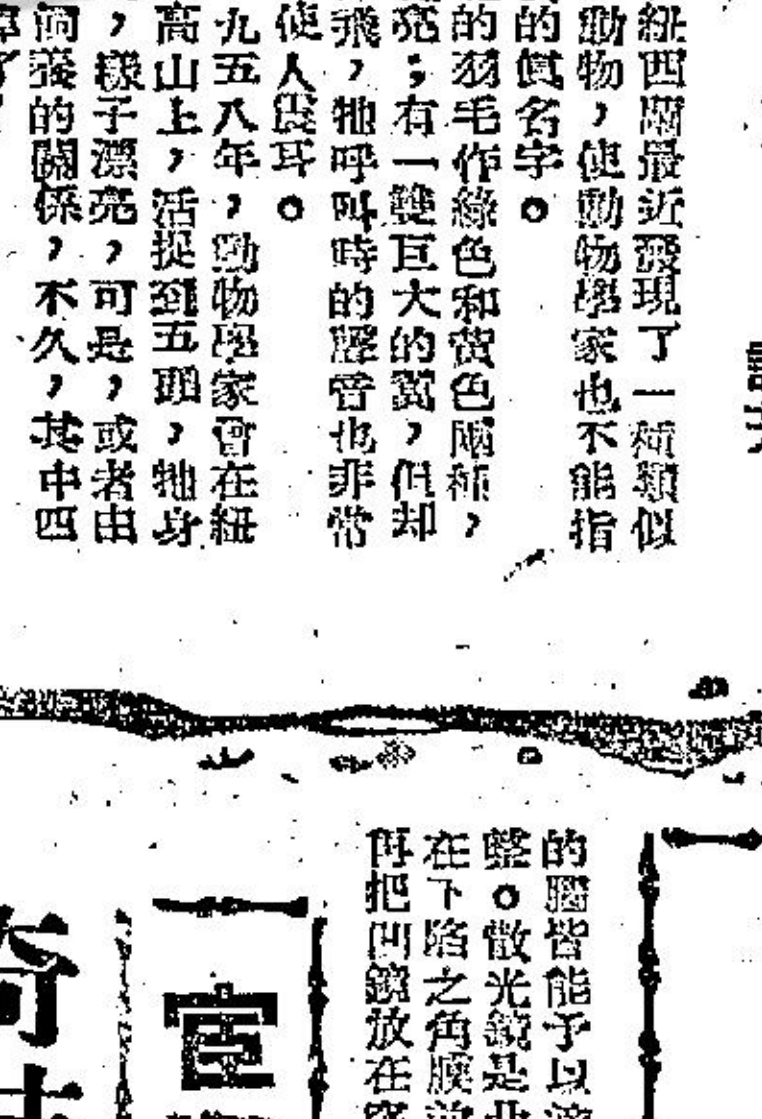 紐西蘭最近發現了一種類似
動物，使動物學家也不能指
的眞名字。
的羽毛作綠色和黃色兩種，
亮；有一雙巨大的翼，但却
飛，牠呼叫時的聲音也非常
使人震耳。
九五八年，動物學家曾在紐
高山上，活捉到五頭，牠身
，樣子漂亮，可是，或者由
的關係，不久，其中四
的腦皆能予以
整。散光鏡是
在下陷之角膜
再把凹鏡放在
宣
奇